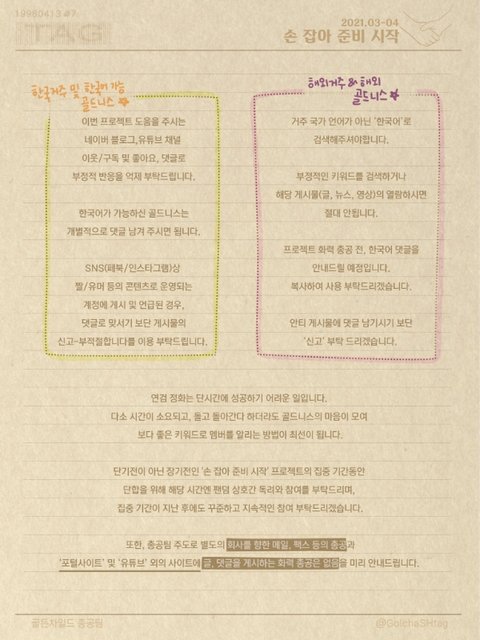 19980413 #7
TAG
2021.03-04
손 잡아 준비 시작
한국거주 및 한국어 가능
골드니스
이번 프로젝트 도움을 주시는
네이버 블로그,유튜브 채널
이웃/구독 및 좋아요, 댓글로
부정적 반응을 억제 부탁드립니다.
한국어가 가능하신 골드니스는
개별적으로 댓글 남겨 주시면 됩니다.
SNS(페북/인스타그램)상
짤/유머 등의 콘텐츠로 운영되는
계정에 게시 및 언급된 경우,
댓글로 맞서기 보단 게시물의
신고-부적절합니다를 이용 부탁드립니다.
해외거주 & 해외
골드니스
거주 국가 언어가 아닌 '한국어'로
검색해주셔야합니다.
부정적인 키워드를 검색하거나
해당 게시물(글, 뉴스, 영상)의 열람하시면
절대 안됩니다.
프로젝트 화력 총공 전, 한국어 댓글을
안내드릴 예정입니다.
복사하여 사용 부탁드리겠습니다.
안티 게시물에 댓글 남기시기 보단
'신고' 부탁 드리겠습니다.
연검 정화는 단시간에 성공하기 어려운 일입니다.
다소 시간이 소요되고, 돌고 돌아간다 하더라도 골드니스의 마음이 모여
보다 좋은 키워드로 멤버를 알리는 방법이 최선이 됩니다.
단기전이 아닌 장기전인 '손 잡아 준비 시작' 프로젝트의 집중 기간동안
단합을 위해 해당 시간엔 팬덤 상호간 독려와 참여를 부탁드리며,
집중 기간이 지난 후에도 꾸준하고 지속적인 참여 부탁드리겠습니다.
또한, 총공팀 주도로 별도의 회사를 향한 메일, 팩스 등의 총공과
'포털사이트' 및 '유튜브' 외의 사이트에 글, 댓글을 게시하는 화력 총공은 없음을 미리 안내드립니다.
골든차일드 총공팀
@GolchaSHtag